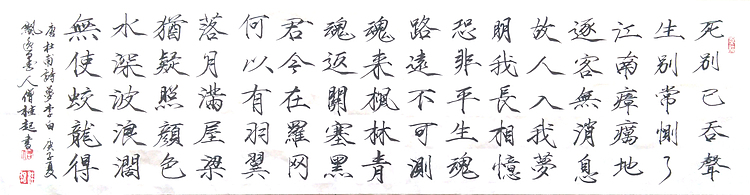 死別已吞聲
生別常惻々
江南瘴癘地
逐客無消息
故人入我夢
明我長相憶
恐非平生魂
路遠不可測
魂来楓林青
魂返關塞黑
君今在羅网
何以有羽翼
落月滿屋梁
猶疑照顏色
水深波浪濶
無使蛟龍得
唐杜甫詩夢李白 庚子夏
人僧桂起書